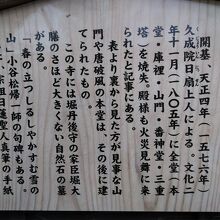 開基　天正四年（一五七六年
久成院日扇上人による。文化二
年十一月（一八〇五年）に全堂（本
堂・庫裡・山門・番神堂・三重
塔）を焼失。殿様も火災見舞に来
られたと記事にある。
表より裏から見た方が見事な山
門や唐破風の本堂は、その後に建
てられたもの。
この寺には堀丹後守の家臣堀大
膳のさほど大きくない自然石の墓
がある。
「春の立つしるしやかすむ雲の
山　小谷松掃　師の句碑もある。
宗祖日蓮聖人真筆の手紙